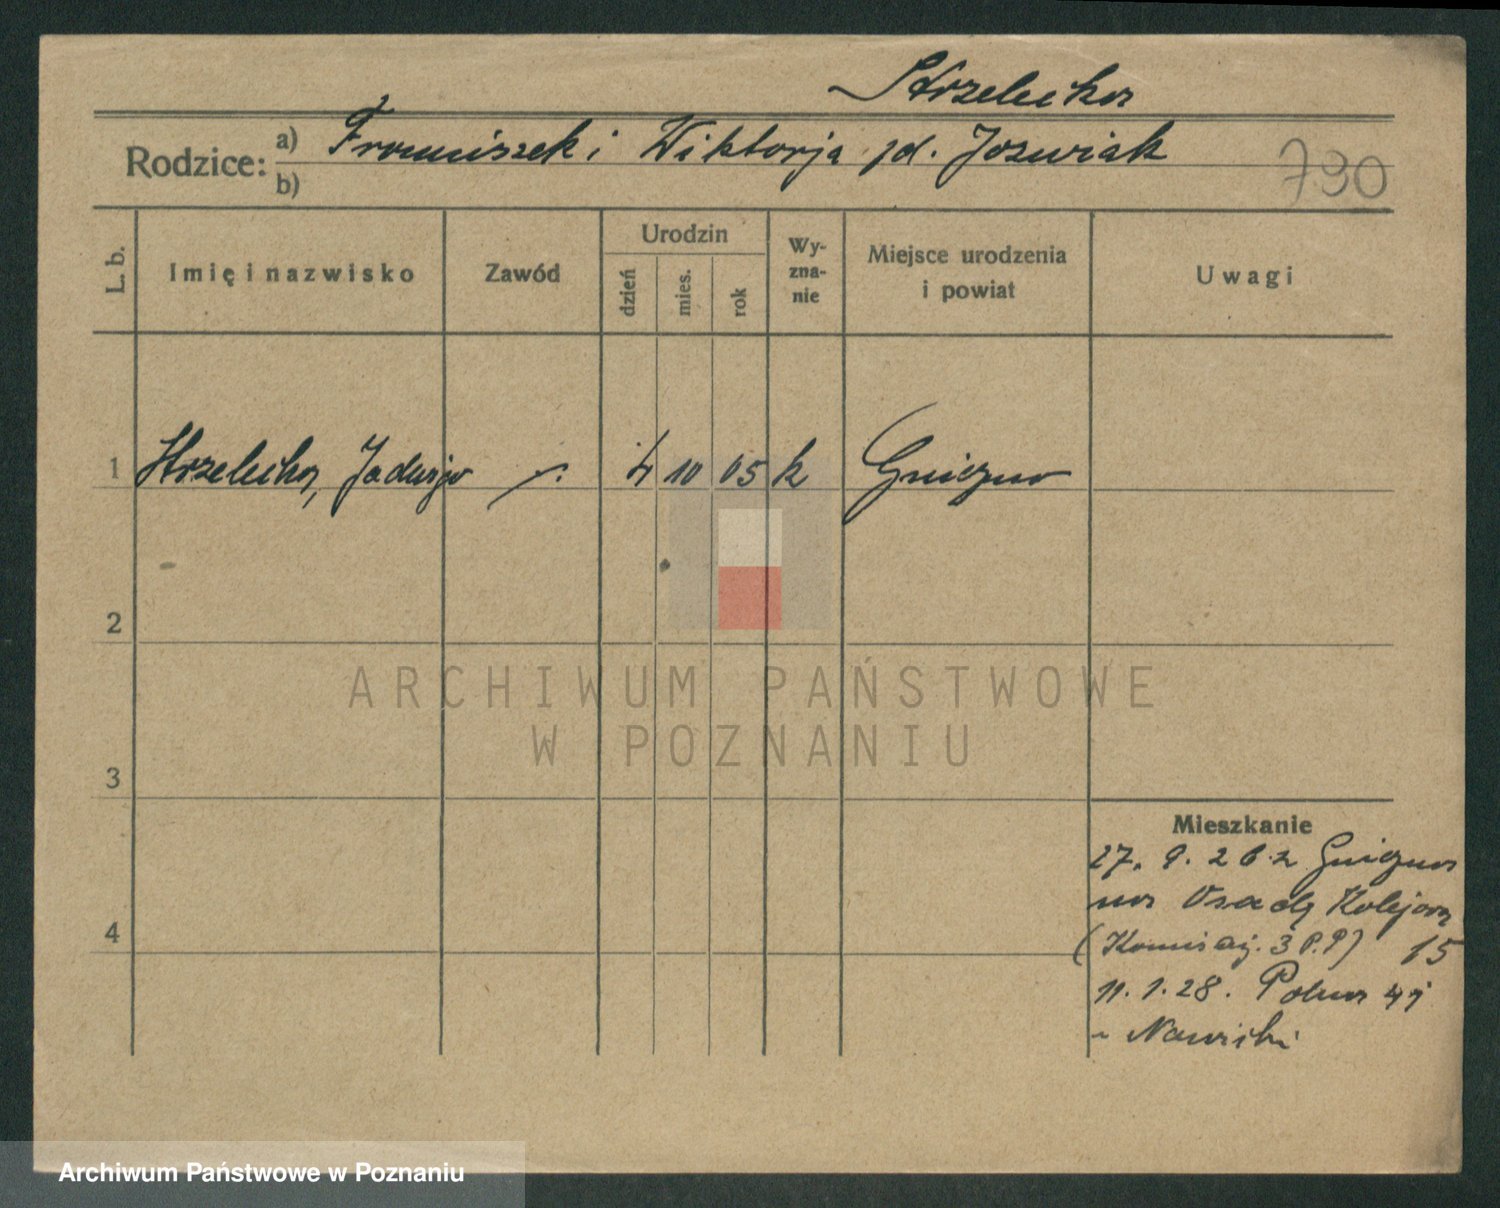 Strzelecka
Rodzice: a) Franciszek i Wiktorja zd. Jozwiak
b)
790
L. b.
Imię i nazwisko
Zawód
Urodzin
dzień
mies.
rok
Wy-
zna-
nie
Miejsce urodzenia
i powiat
Uwagi
1 Strzelecka, Jadwiga 4 10 05 k Gniezno
2
3
4
ARCHIWUM PAŃSTWOWE
W POZNANIU
Mieszkanie
27. 9. 26 z Gniezna
na Osadę Kolejową
(Komisarj. 3 P.P) 15
11. 1. 28. Polna
Archiwum Państwowe w Poznaniu